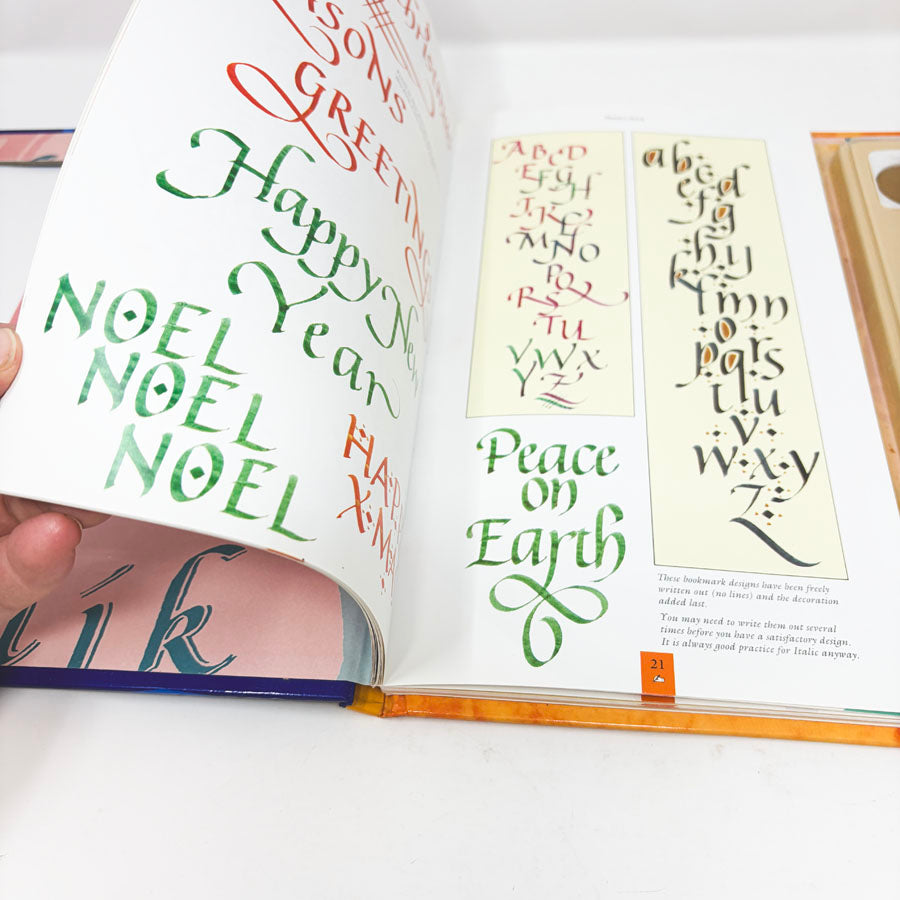 SONS
GREETINGS
Happy New
Year
NOEL
NOEL
NOEL
ABCD
EFGH
IJKL
MNO
PQ
RS
TU
VWX
YZ
abc
d
ef
g
hij
k
lmn
o
pqrs
tu
v
w·x·y
z
Peace
on
Earth
These bookmark designs have been freely
written out (no lines) and the decoration
added last.
You may need to write them out several
times before you have a satisfactory design.
It is always good practice for Italic anyway.
21
ik